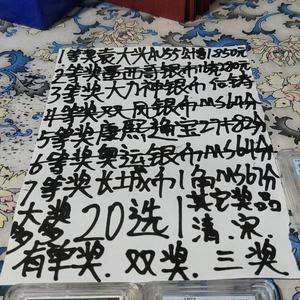 1等奖袁大头AU55公博1350元
2等奖墨西哥银币
3等奖大力神银币
4等奖双凤银币MS64分
5等奖康熙通宝27+82分
6等奖奥运银币MS64分
7等奖长城币1角MS67分
大奖多多 20选1 其它奖品清.宋.
有单奖.双奖.三奖